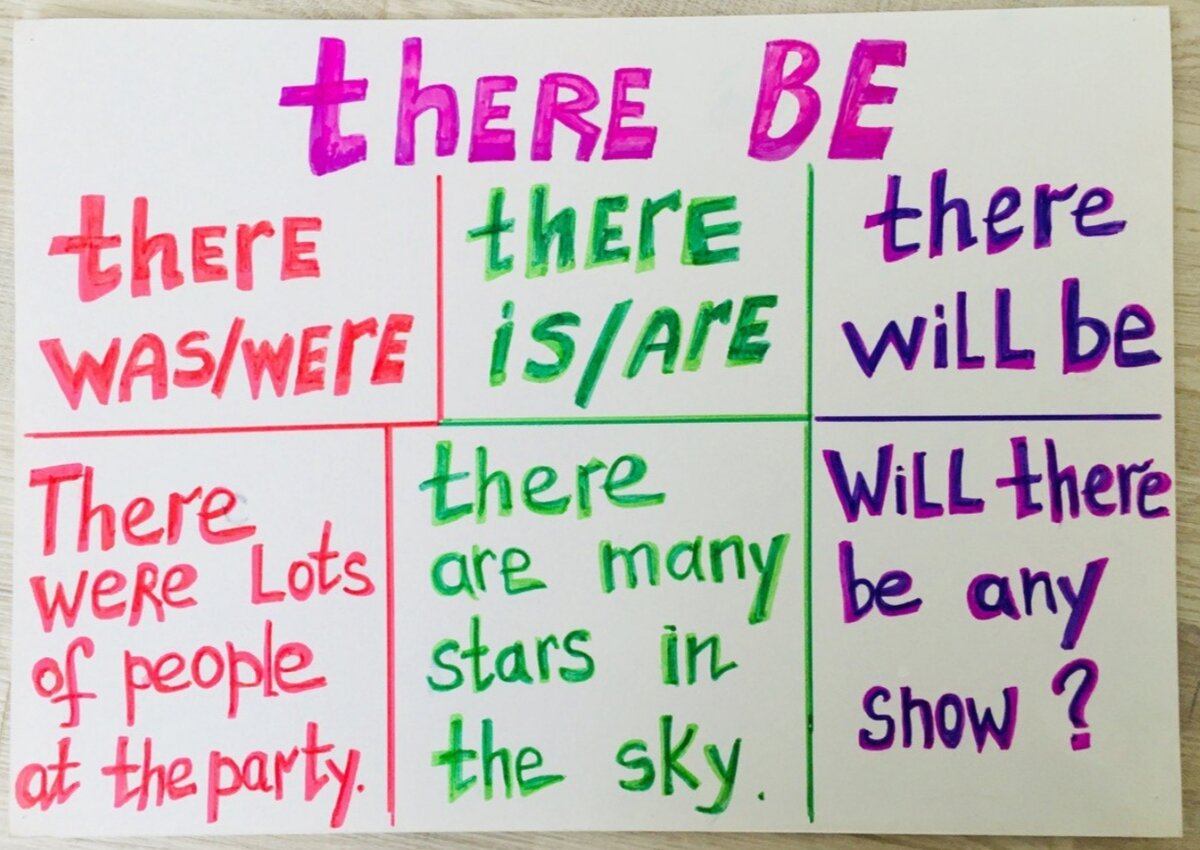 thERE BE
thErE
WAS/WErE
There
weRe Lots
of people
at the party.
thErE
is/ArE
there
are many
stars in
the sky.
there
wiLL be
WiLL there
be any
show ?